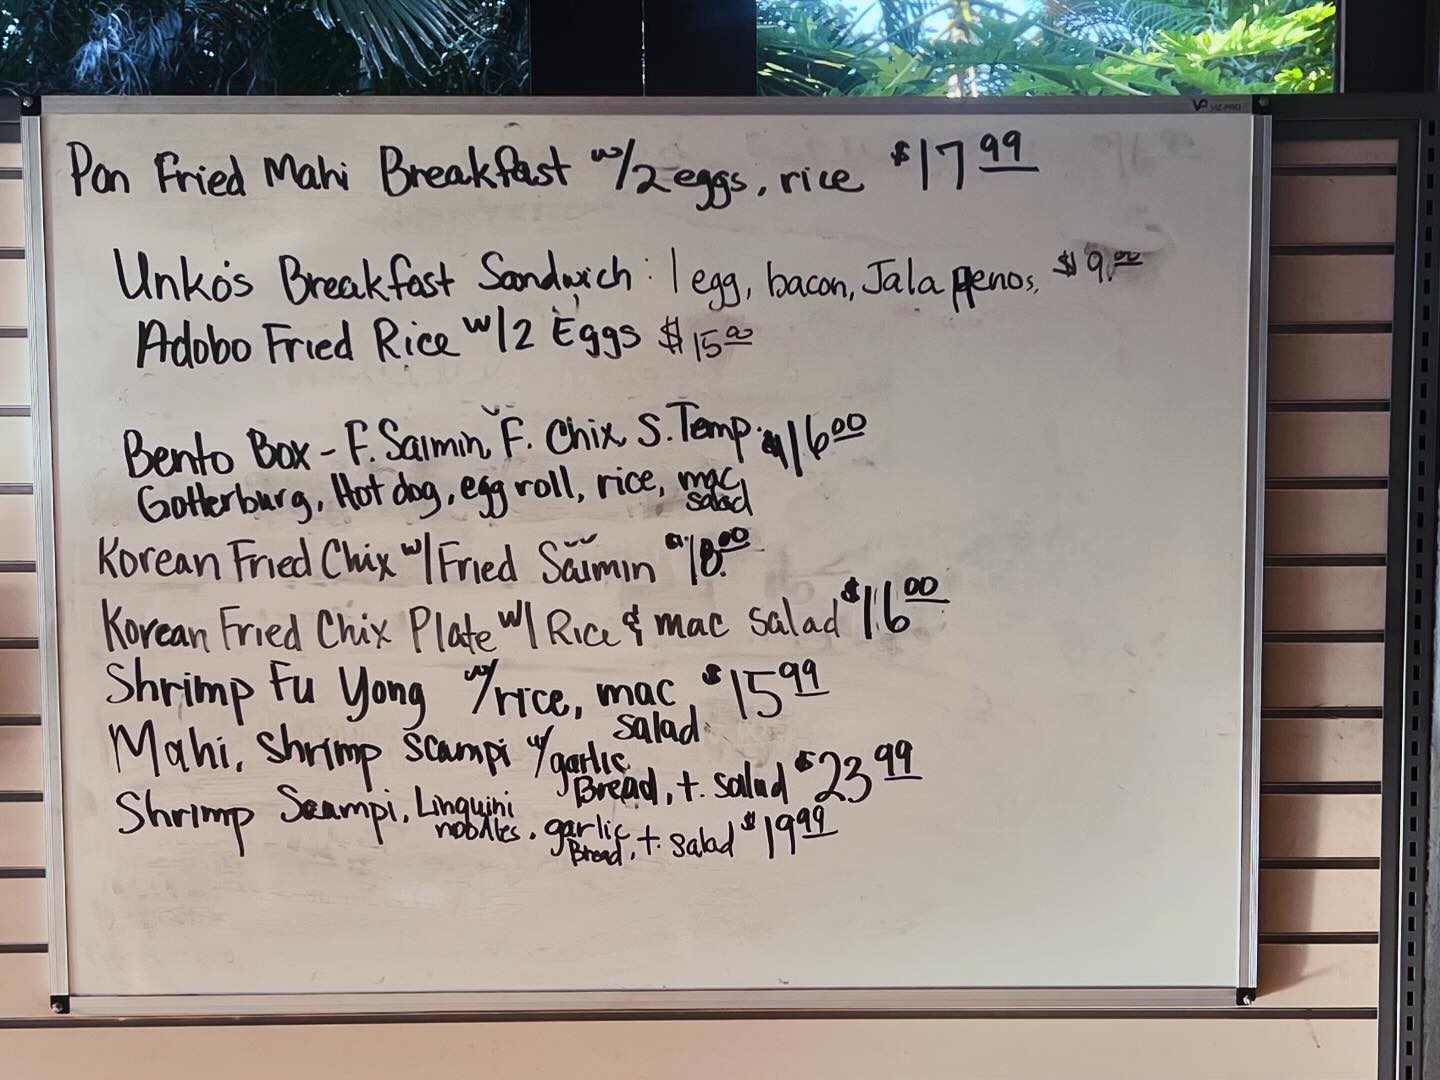 VIZ-PRO
Pan Fried Mahi Breakfast w/2 eggs, rice $17.99
Unko's Breakfast Sandwich: 1 egg, bacon, Jalapenos, $9.00
Adobo Fried Rice w/2 Eggs $15.00
Bento Box - F. Saimin, F. Chix, S. Temp. $16.00
Gotterburg, Hot dog, egg roll, rice, mac salad
Korean Fried Chix w/Fried Saimin $18.00
Korean Fried Chix Plate w/ Rice & mac salad $16.00
Shrimp Fu Yong w/rice, mac salad $15.99
Mahi, Shrimp Scampi w/garlic Bread, t. salad $23.99
Shrimp Scampi, Linguini noodles, garlic Bread, t. salad $19.99